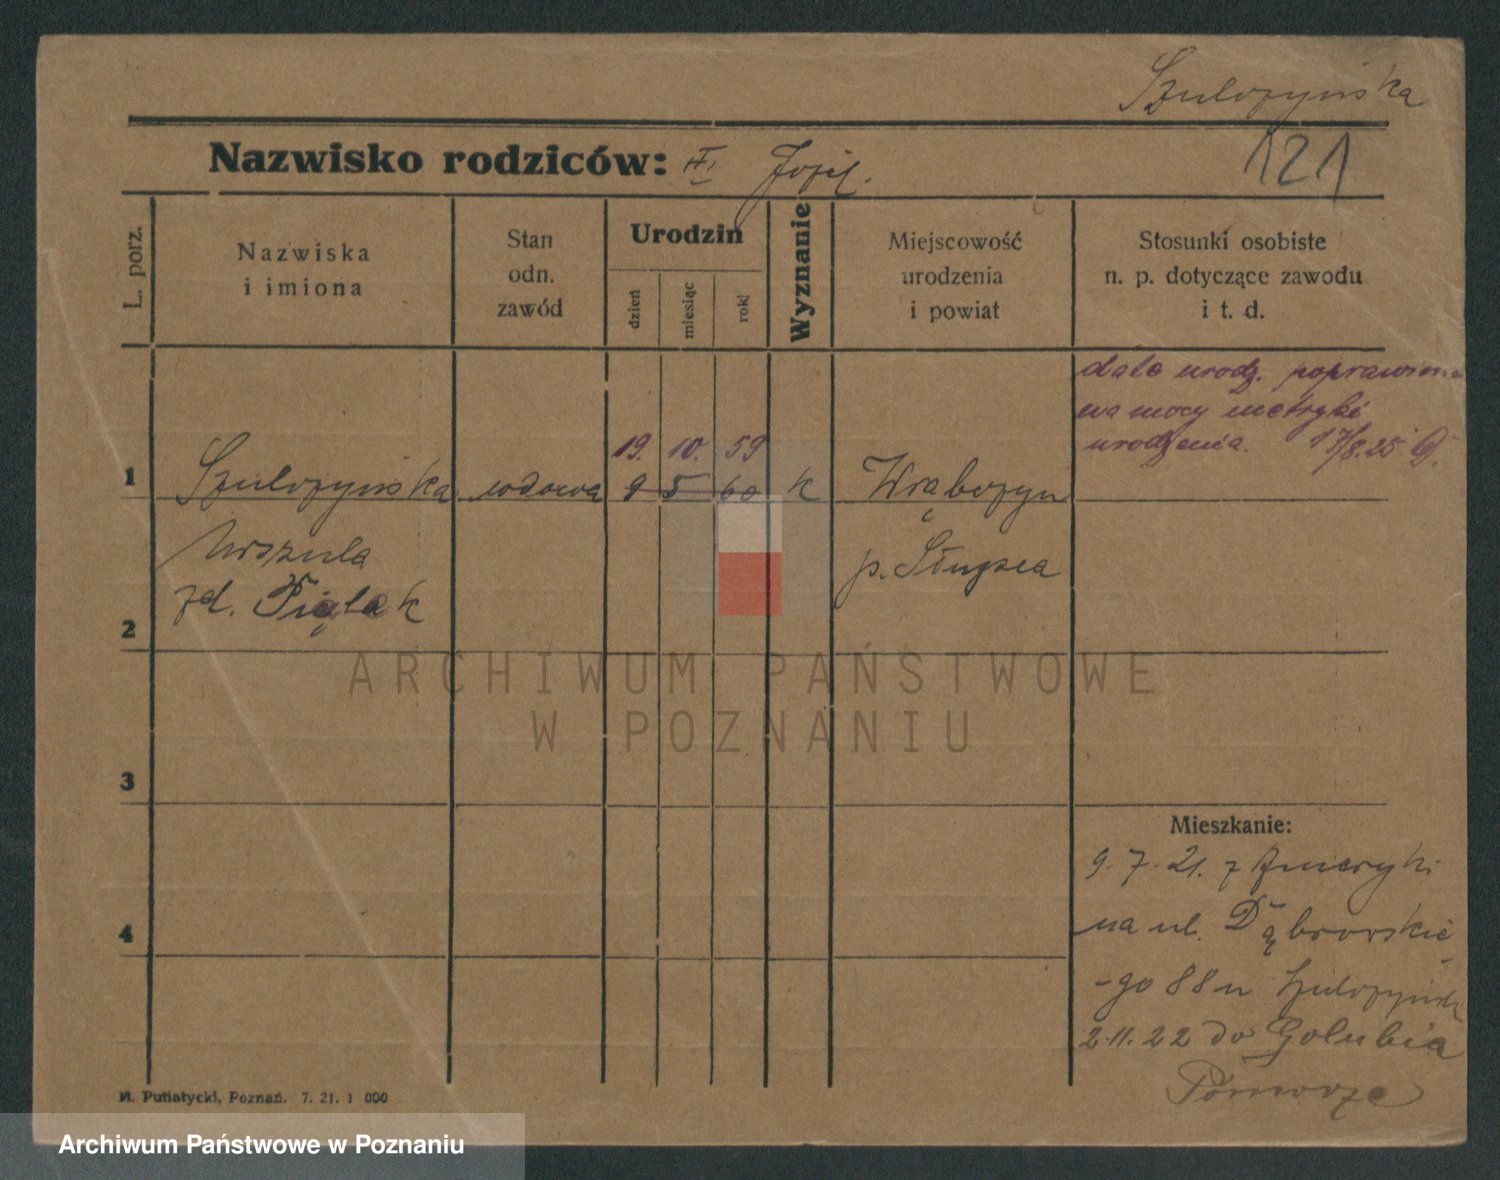 Szulczyńska
121
Nazwisko rodziców: III
L. porz.
Nazwiska
i imiona
Stan
odn.
zawód
Urodzin
dzień
miesiąc
rok
Wyznanie
Miejscowość
urodzenia
i powiat
Stosunki osobiste
n. p. dotyczące zawodu
i t. d.
datę urodz. poprawiono
na mocy metryki
urodzenia. 17/8.25
19. 10. 59
1 Szulczyńska wdowa 9 5 60 k Wrąbczyn
Urszula
p. Słupca
zd. Piątak
2
3
4
Mieszkanie:
9. 7. 21. z Ameryki
na ul. Dąbrowskie
-go 88 u
2.11.22 do Golubia
Pomorze
M. Putiatycki, Poznań. 7. 21. 1 000
ARCHIWUM PAŃSTWOWE
W POZNANIU
Archiwum Państwowe w Poznaniu